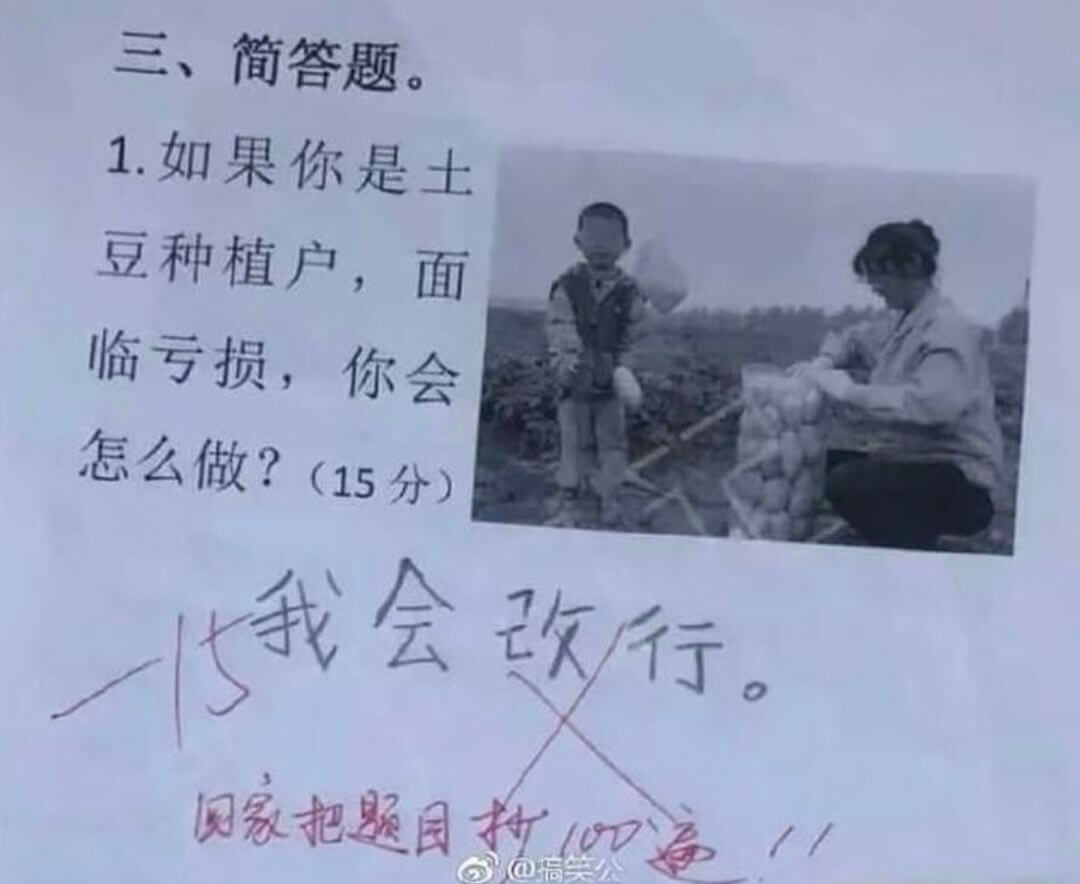 三、简答题。
1.如果你是土
豆种植户，面
临亏损，你会
怎么做？（15分）
我会改行。
-15
回家把题目抄100遍!!
@搞笑公